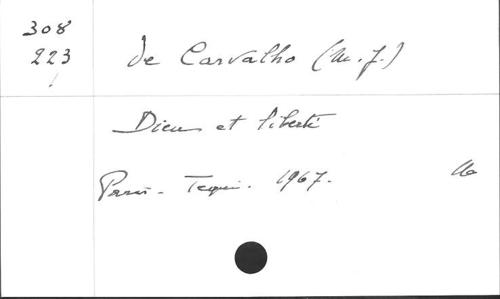 308
223
de Carvalho (M. J.)
Dieu et liberté
Paris - Tequi. 1967.